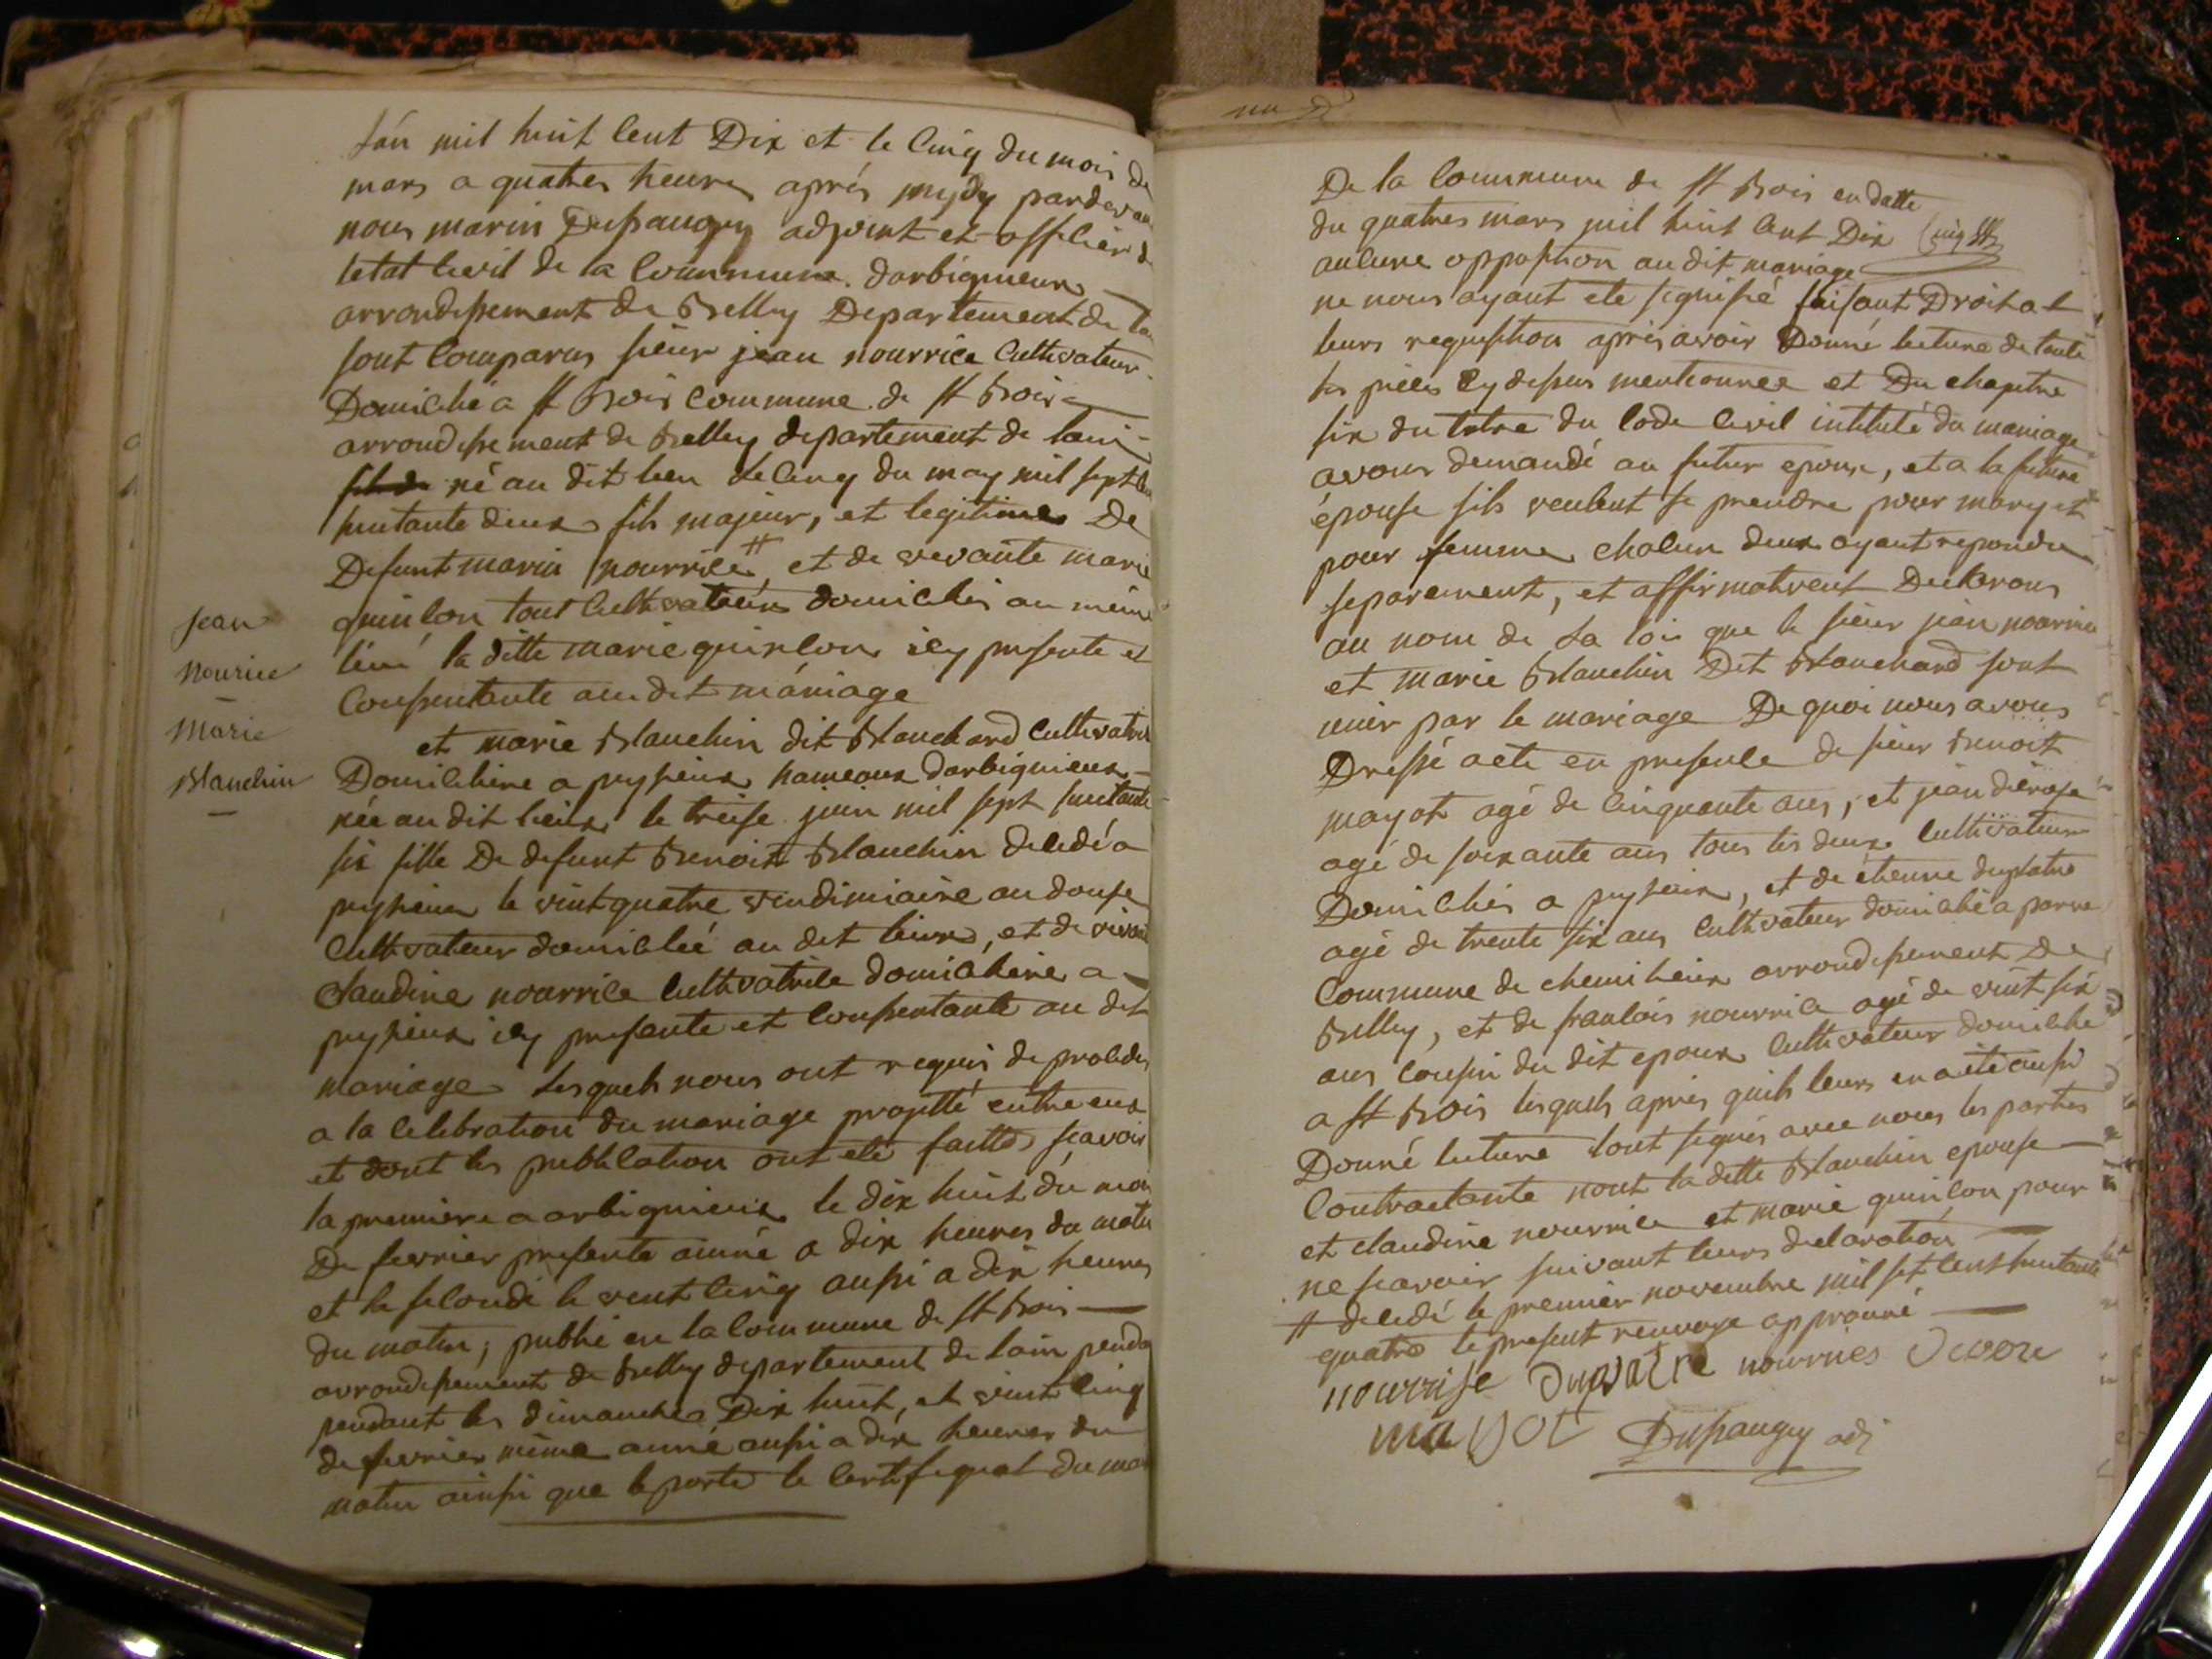 Jean
Nourice
Marie
Blanchin
Lán mil huit Cent Dix et le Cinq du mois de
mars a quatres heures aprés mydy pardevan
nous marin Dupaugey adjoint et officier de
létat Civil de la Commune darbignieux
arrondissement de Belley Departement de lai
sont Comparus sieur jean nourrice Cultivateur
Domicilié a St Bois Commune de St Bois
arrondissement de Belley departement de lain
né au dit lieu le Cinq du may mil sept Cen
huitante deux fils majeur, et legitimes De
Defunt marin nourrice # et de vivante marie
quinson tout Cultivateurs domiciliés au même
lieu la ditte marie quinson icy presente et
Consentante au dit máriage
et marie Blanchin dit Blanchard Cultivatrice
Domiciliére a pugieux hameaux darbignieux
née au dit lieux le treise juin mil sept huitante
six fille De defunt Benoit Blanchin décédé a
pugieux le vint quatre vendimiaire an douse
Cultivateur domicilié au dit lieux, et de vivan
Claudine nourrice Cultivatrice domiciliére a
pugieux icy presente et Consentante au dit
mariage Lesquels nous ont requis de proceder
a la Celebration du mariage projetté entre eux
et dont les publication ont été faittes sçavoir
la premiere a arbignieux le dix huit du moi
De fevrier presente année a dix heures du matin
et la seconde le vent Cinq aussi a dix heures
du matin; publié en la Commune de St Bois
arrondissement de Belley departement de lain penda
pendant les dimanches Dix huit, et vint Cinq
de fevrier même année aussi a dix heures du
matin ainsi que le porte le Certifiquat du mai
De la Commune de St Bois en datte
du quatres mars mil huit Cent Dix
aucune opposition au dit mariage
ne nous ayant eté signifié faisant Droit a
leurs requisition aprés avoir Donné lecture de toute
les piéces Cy dessus mentionnée et Du chapitre
six du titre du Code Civil intitulé du mariage
avons demandé au futur epoux, et a la future
épouse sils veulent se prendre pour mary et
pour femme chacun deux ayant repondu
separement, et affirmativent Declarons
au nom de La loi que le sieur jean nourrice
et marie Blanchin Dit Blanchard sont
unis par le mariage De quoi nous avons
Dressé acte en presence de sieur Benoit
mayot agé de Cinquante ans, et jean
agé de soixante ans tous les deux Cultivateurs
Domiciliés a pugieux, et de étienne duplatre
agé de trente six ans Cultivateur domicilié a
Commune de chemilieux arrondissement De
Belley, et de francois nourrice agé de vint six
ans Cousin du dit epoux Cultivateur domicilié
a St Bois lesquels aprés quils leurs en a été aussi
Donné lecture lont signés avec nous les parties
Contractante nont la ditte Blanchin epouse
et claudine nourrice et marie quinson pour
ne sçavoir suivant leurs declaration
# décédé le premier novembre mil sept Cent huitante
quatre le present renvoye approuvé
nourrise Duplatre nourrices
mayot Dupaugey adj